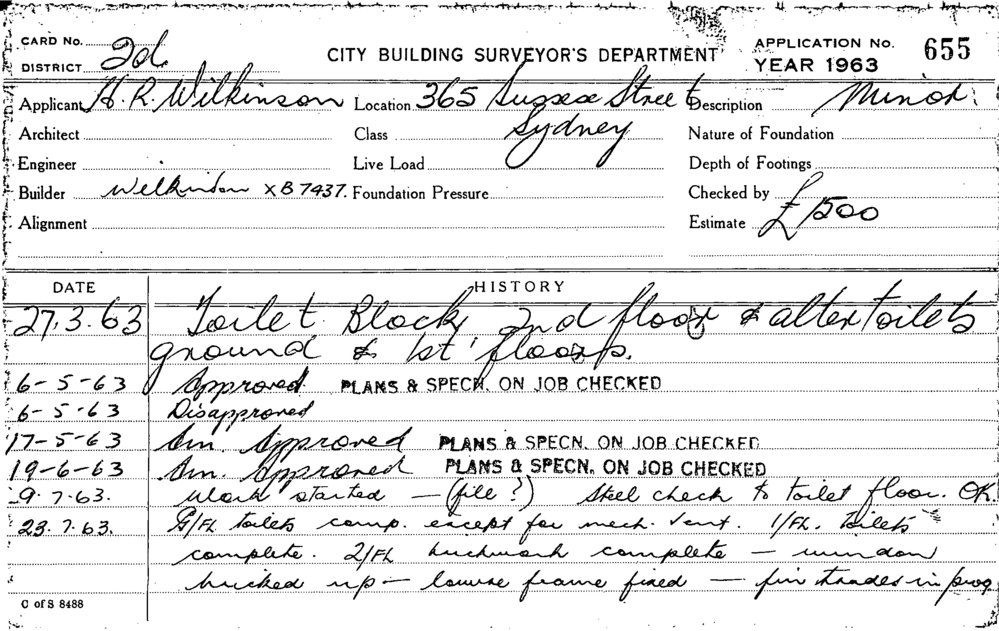 CARD No.
DISTRICT 2d.
CITY BUILDING SURVEYOR'S DEPARTMENT
APPLICATION No. 655
YEAR 1963
Applicant H. R. Wilkinson Location 365 Sussex Street Description Minor.
Architect Class Sydney Nature of Foundation
Engineer Live Load Depth of Footings
Builder Wilkinson XB7437. Foundation Pressure Checked by
Alignment Estimate £1500
DATE HISTORY
27.3.63 Toilet Block 2nd floor & alter toilets
ground & 1st floors.
6-5-63 Approved PLANS & SPECN. ON JOB CHECKED
6-5-63 Disapproved
17-5-63 Am. Approved PLANS & SPECN. ON JOB CHECKED
19-6-63 Am. Approved PLANS & SPECN. ON JOB CHECKED
9.7.63. Work started — (file?) Steel check to toilet floor. OK.
23.7.63. G/FL toilets comp. except for mech. vent. 1/FL. toilets
complete. 2/FL brickwork complete — window
bricked up — louvre frame fixed — fin trades in prog
C of S 8488